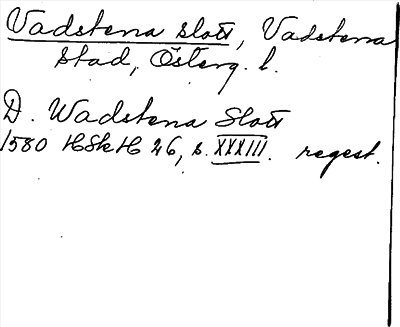 Vadstena slott, Vadstena
stad, Österg. l.
D. Wadstena Slott
1580 HSkH 26, s. XXXIII. regest.